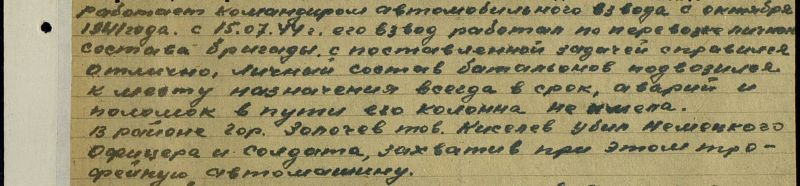 работает командиром автомобильного взвода с октября
1941 года. с 15.07.44 г. его взвод работал по перевозке личного
состава бригады. с поставленной задачей справился
отлично, личный состав батальонов подвозился
к месту назначения всегда в срок, аварий и
поломок в пути его колонна не имела.
В районе гор. Золочев тов. Киселев убил немецкого
офицера и солдата, захватив при этом тро-
фейную автомашину.